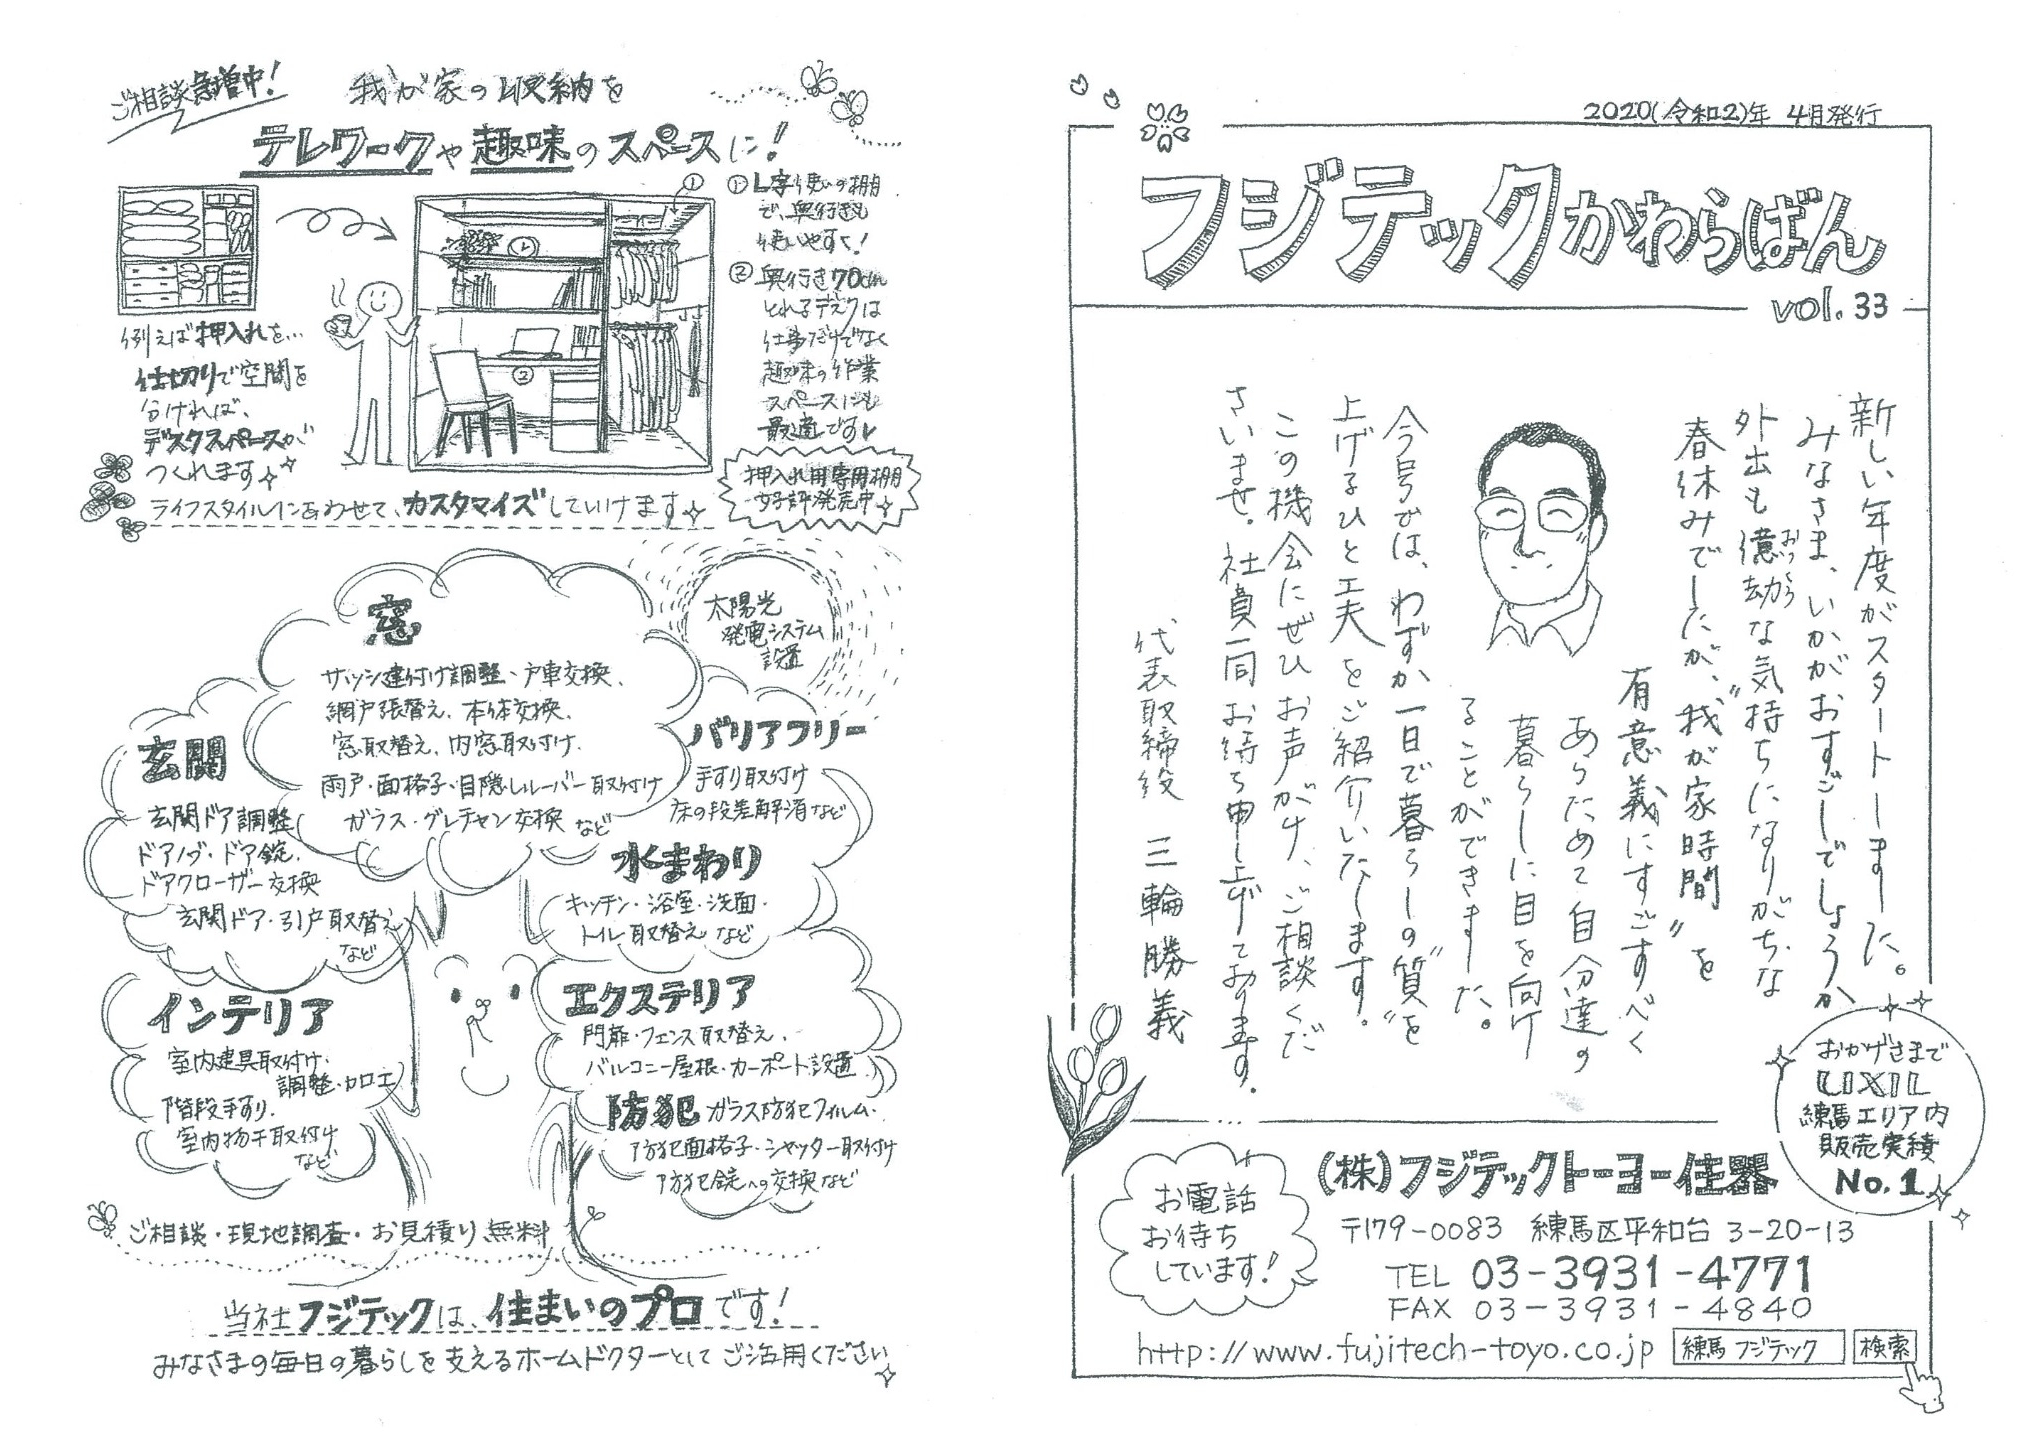 2020(令和2)年 4月発行
フジテックかわらばん
vol.33
新しい年度がスタートしました。
みなさま、いかがおすごしでしょうか
外出も億劫な気持ちになりがちな
おっくう
春休みでしたが、"我が家時間"を
有意義にすごすべく
あらためて自分達の
暮らしに目を向け
ることができました。
今号では、わずか一日で暮らしの"質"を
上げるひと工夫をご紹介いたします。
この機会にぜひお声がけ、ご相談くだ
さいませ。社員一同お待ち申し上げております。
代表取締役 三輪勝義
おかげさまで
LIXIL
練馬エリア内
販売実績
No.1
お電話
お待ち
しています!
(株)フジテックトーヨー住器
〒179-0083 練馬区平和台 3-20-13
TEL 03-3931-4771
FAX 03-3931-4840
http://www.fujitech-toyo.co.jp 練馬 フジテック 検索
ご相談急増中!
我が家の収納を
テレワークや趣味のスペースに!
①
①
②
例えば押入れを…
仕切りで空間を
分ければ、
デスクスペースが
つくれます
①L字使いの棚
で、奥行きも
使いやすく!
②奥行き70cm
とれるデスクは
仕事だけでなく
趣味の作業
スペースにも
最適です
押入れ用専用棚
好評発売中
ライフスタイルにあわせて、カスタマイズしていけます
太陽光
発電システム
設置
窓
サッシ建付け調整、戸車交換、
網戸張替え、本体交換、
窓取替え、内窓取付け、
雨戸・面格子・目隠しルーバー取付け
ガラス・グレチャン交換 など
玄関
玄関ドア調整
ドアノブ・ドア錠、
ドアクローザー交換
玄関ドア・引戸取替え
など
バリアフリー
手すり取付け
床の段差解消など
水まわり
キッチン・浴室・洗面・
トイレ取替え など
インテリア
室内建具取付け・
調整・加工
階段手すり、
室内物干取付け
など
エクステリア
門扉・フェンス取替え、
バルコニー屋根・カーポート設置
防犯 ガラス防犯フィルム・
防犯面格子・シャッター取付け
防犯錠への交換など
ご相談・現地調査・お見積り無料
当社フジテックは、住まいのプロです!
みなさまの毎日の暮らしを支えるホームドクターとしてご活用ください